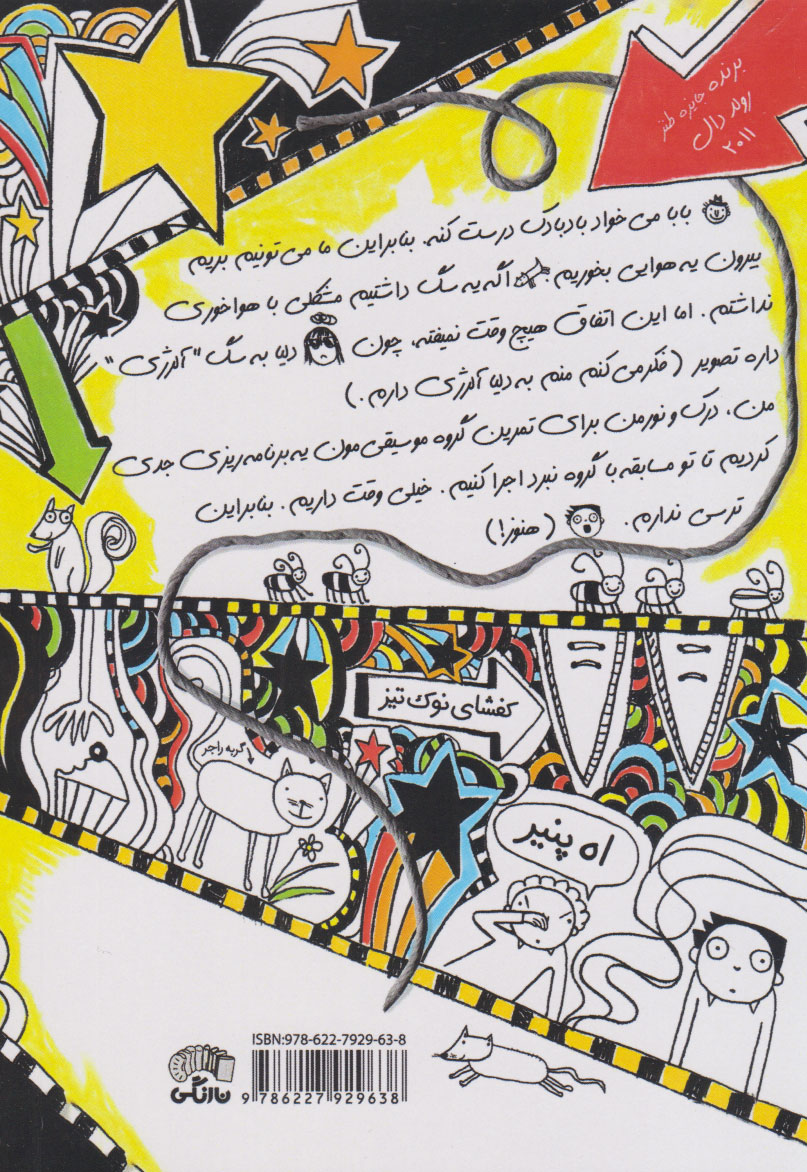 برنده جایزه طنز
رولد دال
۲۰۱۱
بابا می خواد بادبادک درست کنه. بنابراین ما می تونیم بریم
بیرون یه هوایی بخوریم. اگه یه سگ داشتیم مشکلی با هواخوری
نداشتم. اما این اتفاق هیچ وقت نمیفته، چون دلیا به سگ "آلرژی"
داره تصویر (فکر می کنم منم به دلیا آلرژی دارم.)
من، درک و نورمن برای تمرین گروه موسیقی مون یه برنامه ریزی جدی
کردیم تا تو مسابقه با گروه نبرد اجرا کنیم. خیلی وقت داریم. بنابراین
ترسی ندارم. (هنوز!)
کفشای نوک تیز
گربه راجر
اه پنیر
ISBN:978-622-7929-63-8
9 786227 929638
نارنگی